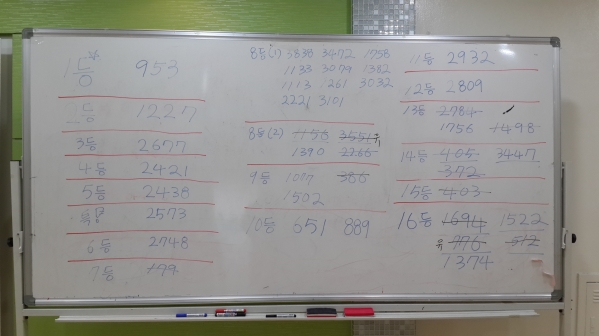 1등 953
2등 1227
3등 2677
4등 2421
5등 2438
2573
6등 2748
7등 199
8등(1) 3838 3472 1758
1133 3079 1382
1113 1261 3032
2221 3101
8등(2) 1156 3551
1390 2266
9등 1017 386
1502
10등 651 889
11등 2932
12등 2809
13등 2784
1756 1498
14등 405 3447
372
15등 403
16등 1694 1522
776 512
1374